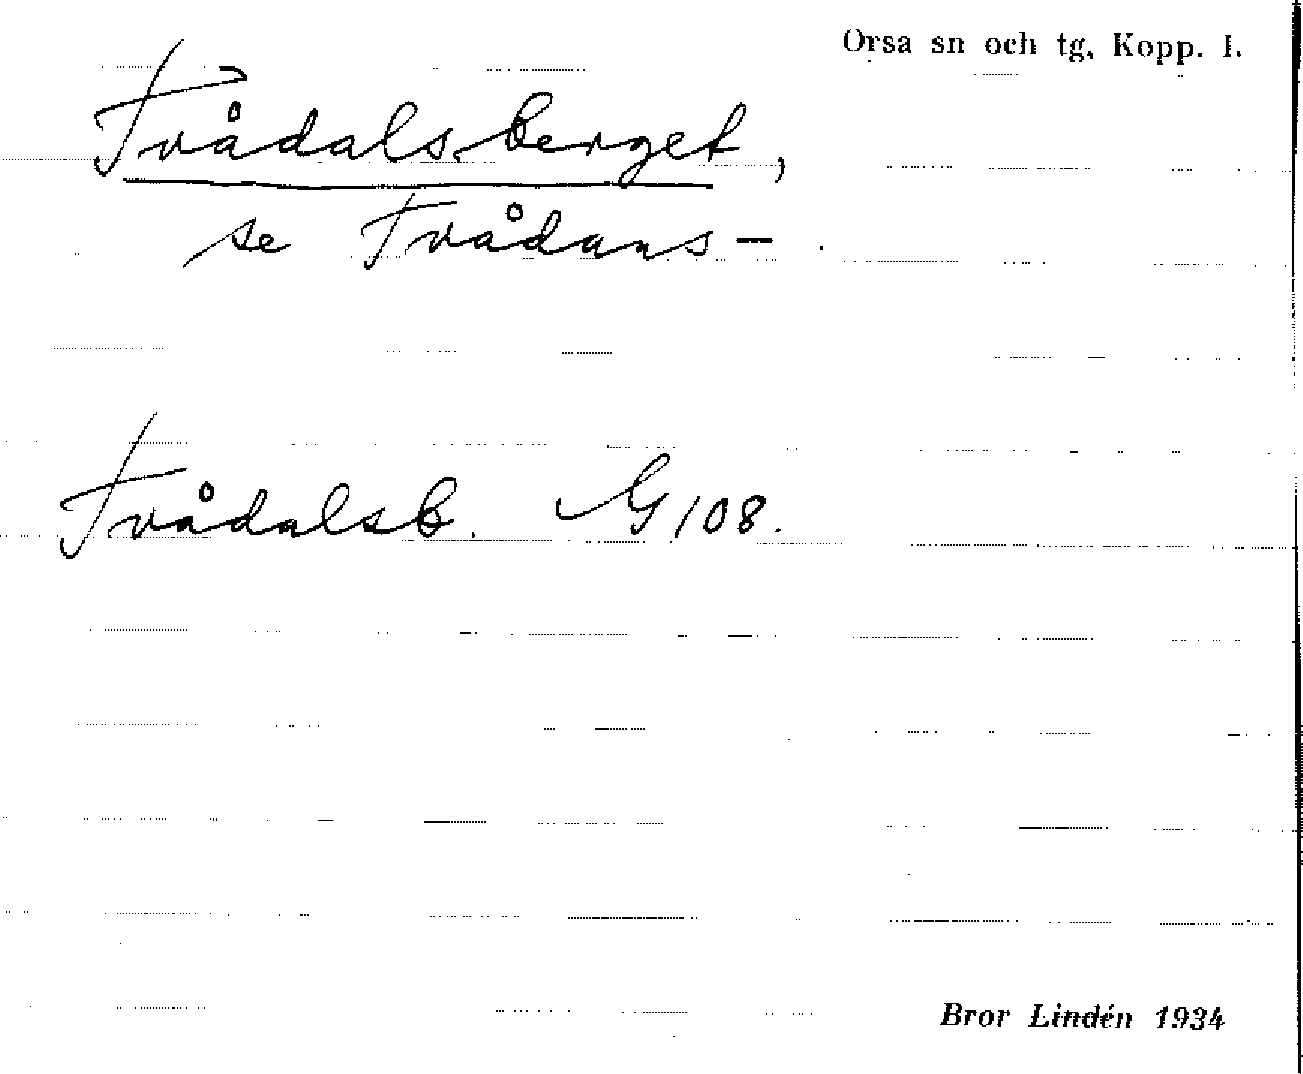 Orsa sn och tg, Kopp. l.
Tvådalsberget,
se Tvådans- .
Tvådalsb. G 108.
Bror Lindén 1934